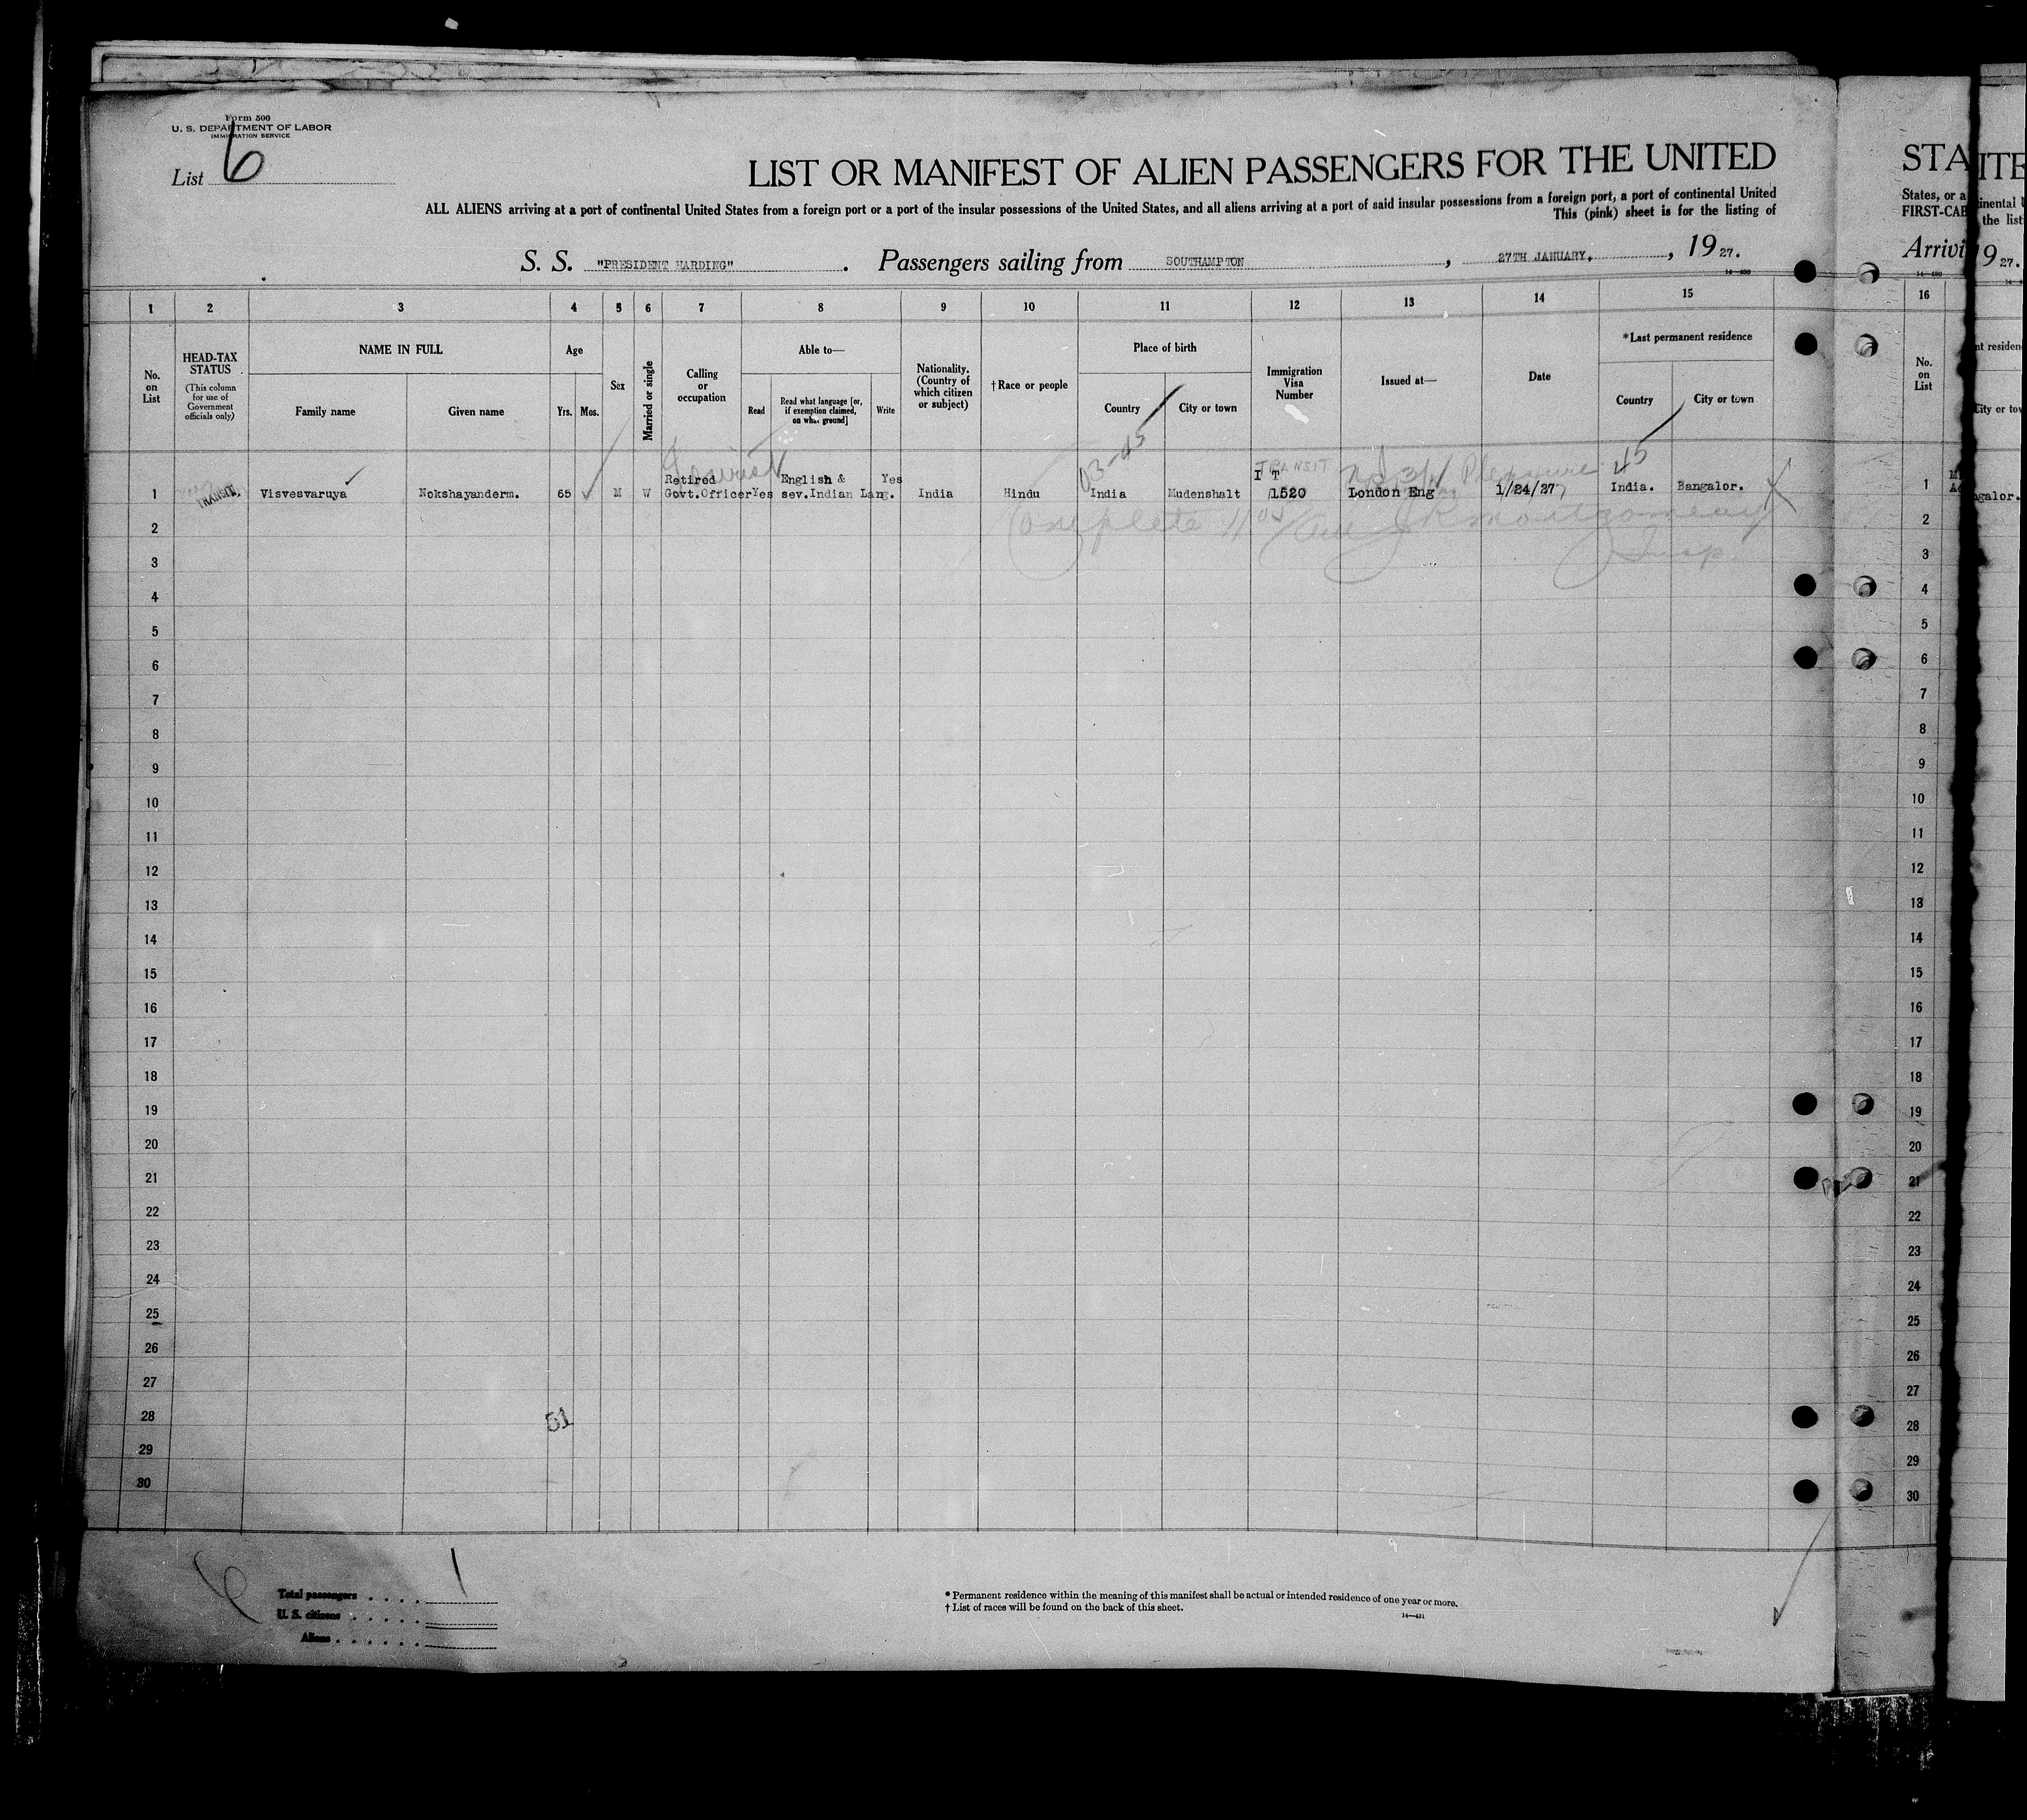 Form 500
U. S. DEPARTMENT OF LABOR
IMMIGRATION SERVICE
List 6
LIST OR MANIFEST OF ALIEN PASSENGERS FOR THE UNITED
ALL ALIENS arriving at a port of continental United States from a foreign port or a port of the insular possessions of the United States, and all aliens arriving at a port of said insular possessions from a foreign port, a port of continental United
This (pink) sheet is for the listing of
S. S. "PRESIDENT HARDING". Passengers sailing from SOUTHAMPTON, 27TH JANUARY., 1927.
14—480
1 2 3 4 5 6 7 8 9 10 11 12 13 14 15
No. on List
HEAD-TAX STATUS
(This column for use of Government officials only)
NAME IN FULL
Family name
Given name
Age
Yrs. Mos.
Sex
Married or single
Calling or occupation
Able to—
Read
Read what language [or, if exemption claimed, on what ground]
Write
Nationality. (Country of which citizen or subject)
†Race or people
Place of birth
Country
City or town
Immigration Visa Number
Issued at—
Date
*Last permanent residence
Country
City or town
1 TRANSIT. Visvesvaruya Nokshayanderm. 65 M W Retired Govt.Officer Yes English & sev.Indian Lang. Yes India Hindu India Mudenshalt TRANSIT I T 1520 London Eng 1/24/27 India. Bangalor.
03-45
45
Pleasure
Complete
Insp
2
3
4
5
6
7
8
9
10
11
12
13
14
15
16
17
18
19
20
21
22
23
24
25
26
27
28
51
29
30
Total passengers . . . . 1
U. S. citizens . . . . .
Aliens . . . . . .
* Permanent residence within the meaning of this manifest shall be actual or intended residence of one year or more.
† List of races will be found on the back of this sheet.
14—431
STA
States, or a
FIRST-CAB
Arrivi
16
No. on List
1
2
3
4
5
6
7
8
9
10
11
12
13
14
15
16
17
18
19
20
21
22
23
24
25
26
27
28
29
30
ITE
inental U
the list
9 27.
nt residen
City or tow
ngalor.